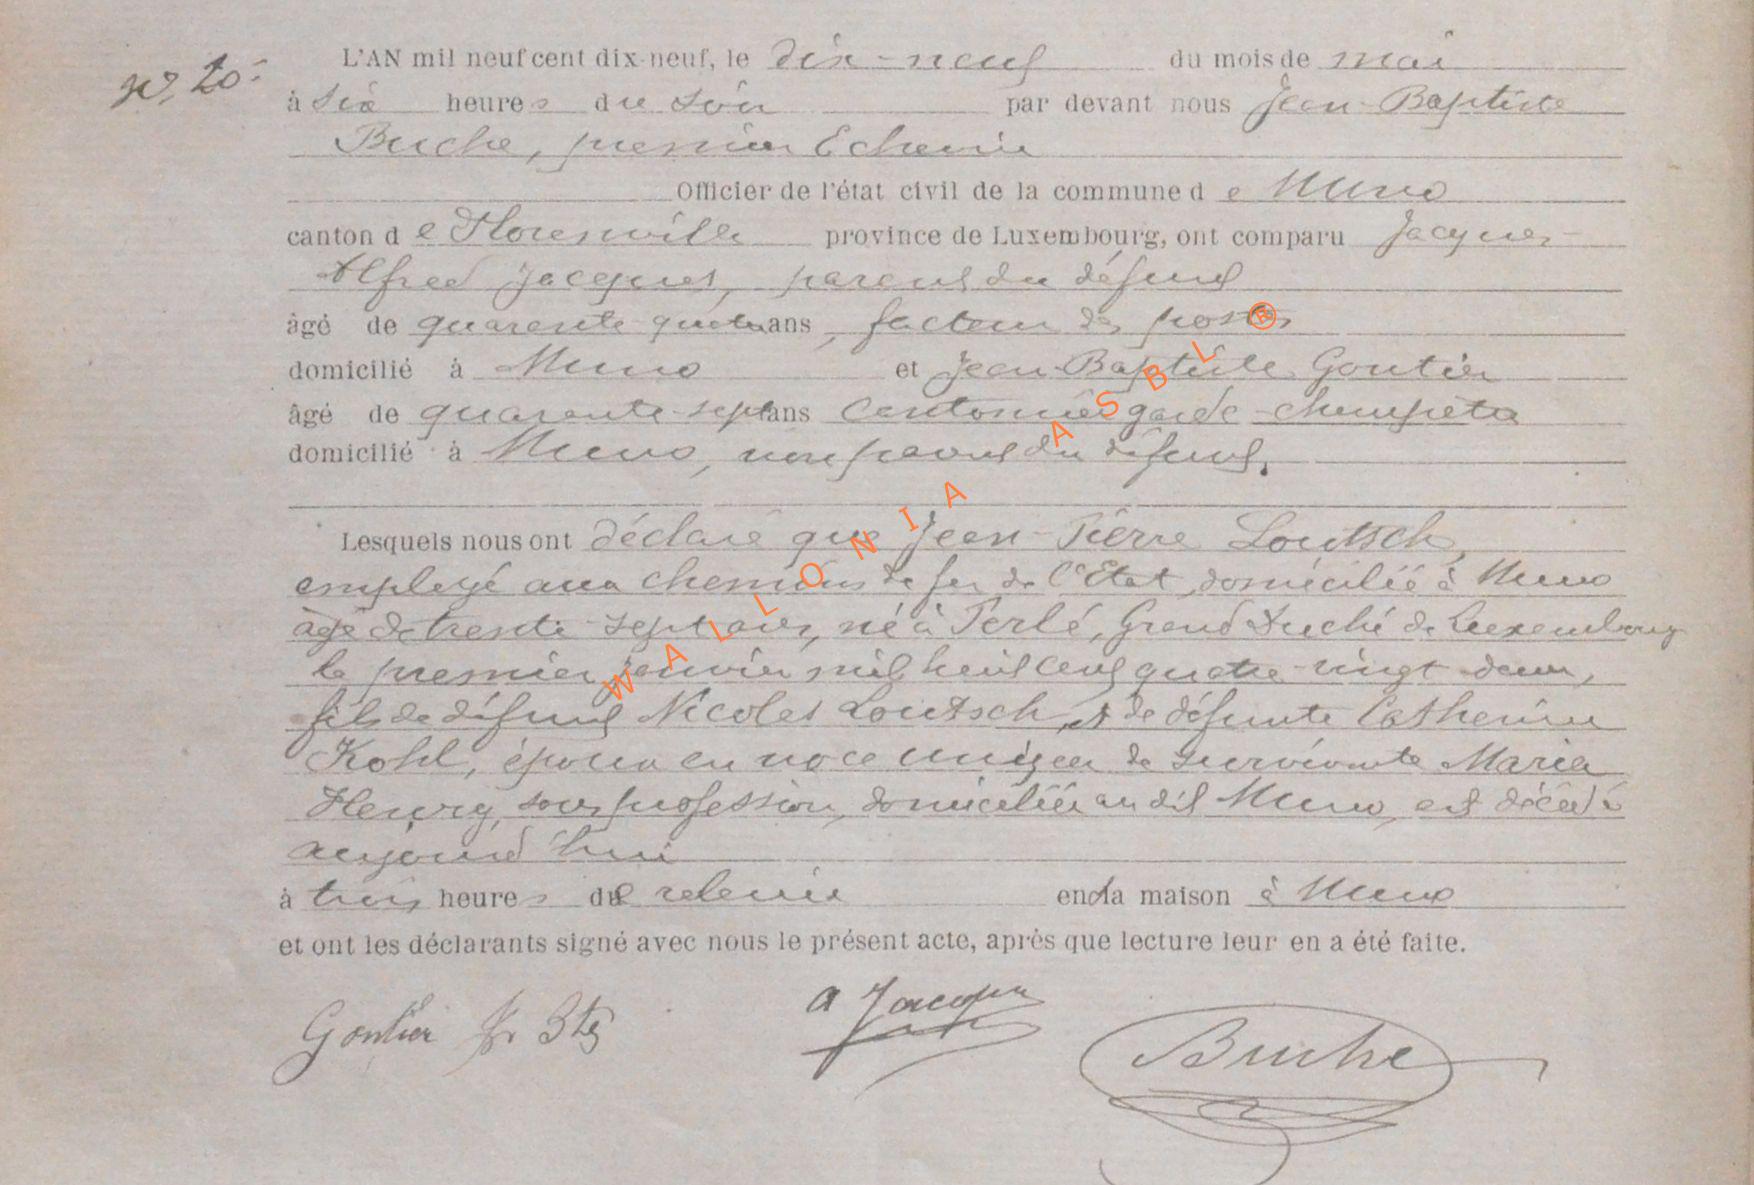 N° 20.
L'AN mil neuf cent dix-neuf, le dix-neuf du mois de mai
à six heures du soir par devant nous Jean-Baptiste
Buche, premier Echevin
Officier de l'état civil de la commune de Muno
canton de Florenville province de Luxembourg, ont comparu Jacques
Alfred Jacques, parent du défunt
âgé de quarante quatre ans, facteur des postes
domicilié à Muno et Jean-Baptiste Goutier
âgé de quarante-sept ans cantonnier garde-champêtre
domicilié à Muno, non parent du défunt.
Lesquels nous ont déclaré que Jean-Pierre Loutsch,
employé aux chemins de fer de l'Etat, domicilié à Muno
âgé de trente-sept ans, né à Perlé, Grand Duché de Luxembourg
le premier janvier mil huit cent quatre-vingt-deux,
fils de défunt Nicolas Loutsch et de défunte Catherine
Kohl, époux en noce unique de survivante Maria
Henry, sans profession, domiciliée au dit Muno, est décédé
aujourd'hui
à trois heures de relevée en la maison à Muno
et ont les déclarants signé avec nous le présent acte, après que lecture leur en a été faite.
Goutier J. Bte A Jacques Buche
WALLONIA ASBL ®